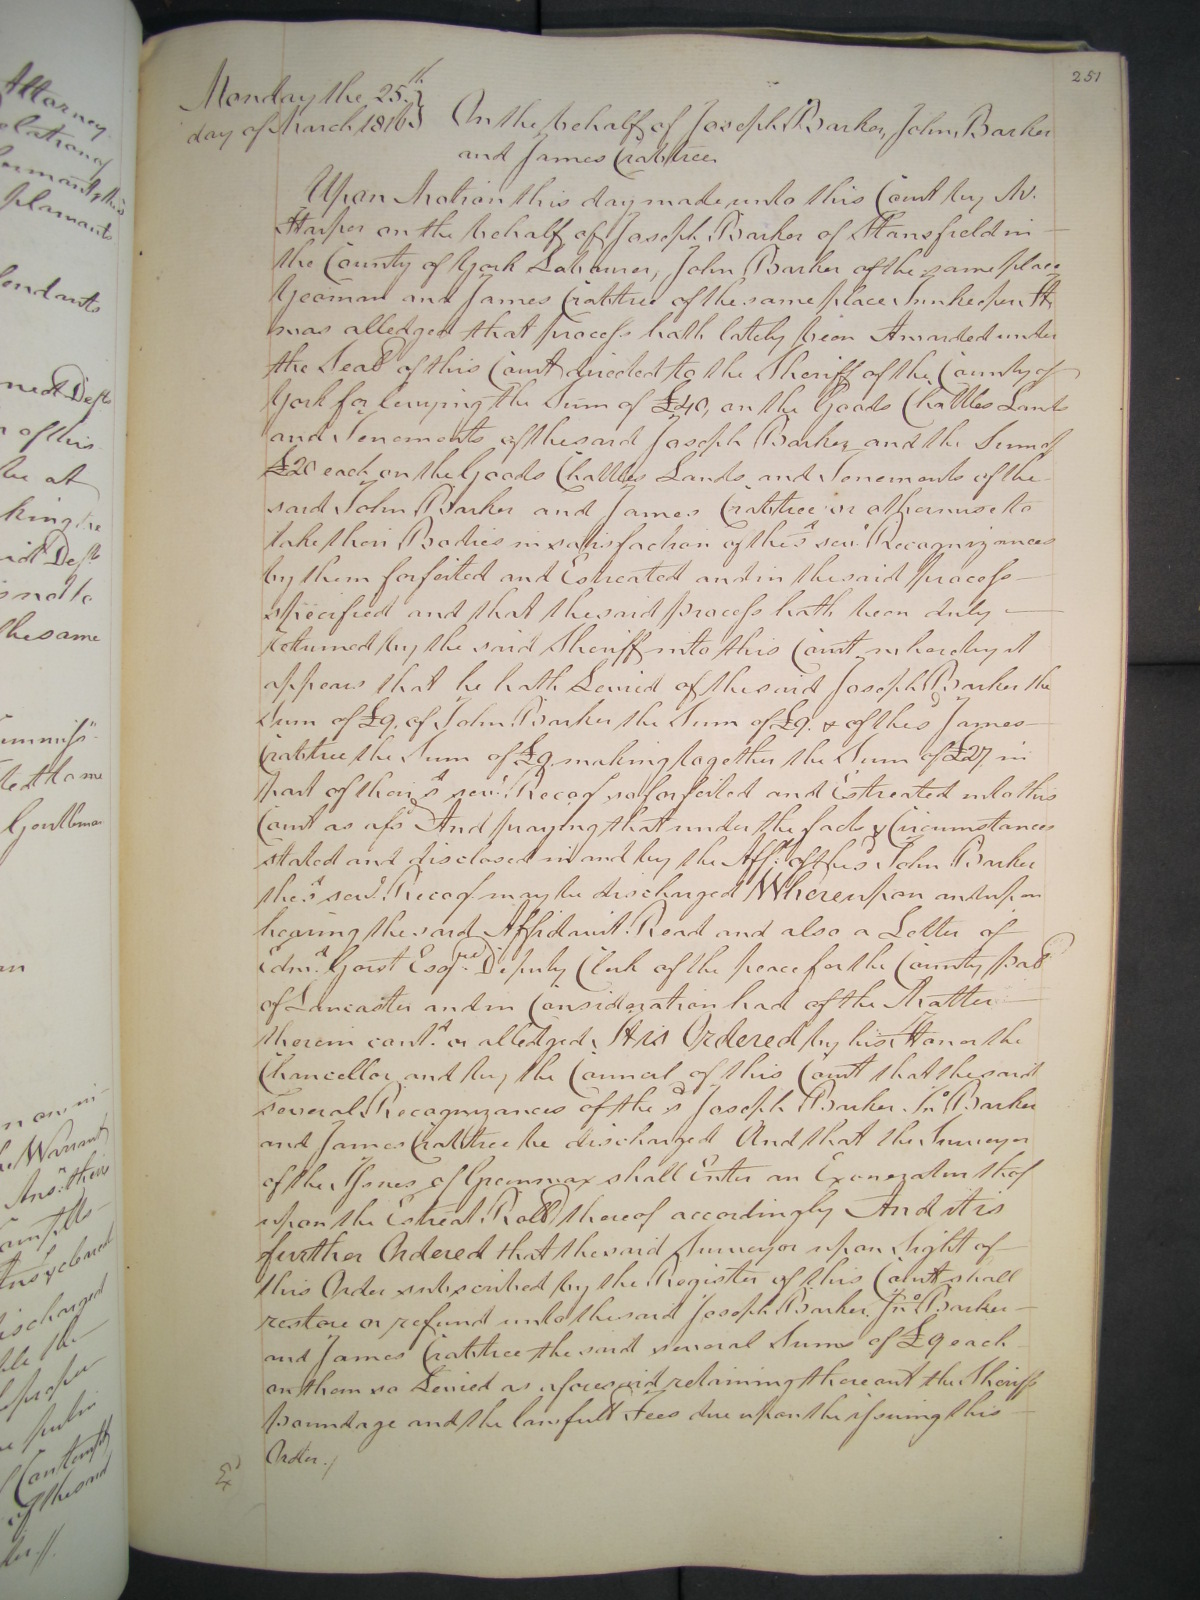 251
Monday the 25.th
day of March 1816
On the behalf of Joseph Barker, John Barker
and James Crabtree
Upon Motion this day made unto this Court by Mr.
Harper on the behalf of Joseph Barker of Stansfield in
the County of York Labourer, John Barker of the same place
Yeoman and James Crabtree of the same place Innkeeper It
was alledged that process hath lately been Awarded under
the Seal of this Court directed to the Sheriff of the County of
York for levying the Sum of £40, on the Goods Chattles Lands
and Tenements of the said Joseph Barker and the Sum of
£20 each on the Goods Chattles Lands and Tenements of the
said John Barker and James Crabtree or otherwise to
take their Bodies in satisfaction of the sd sevl Recognizances
by them forfeited and Estreated and in the said process
specified and that the said process hath been duly
returned by the said Sheriff into this Court whereby it
appears that he hath Levied of the said Joseph Barker the
Sum of £9. of John Barker the Sum of £9. & of the sd James
Crabtree the Sum of £9 making together the Sum of £27 in
part of their sd sevl Recogs so forfeited and Estreated into this
Court as afsd And praying that under the facts & Circumstances
stated and disclosed in and by the Afft. of the sd John Barker
the sd sevl Recogs may be discharged Whereupon and upon
hearing the said Affidavit Read and also a Letter of
Edmd. Gorst Esqre Deputy Clerk of the peace for the County pal
of Lancaster and in Consideration had of the Matter
therein contd. or alledged, It is Ordered by his Honor the
Chancellor and by the Council of this Court that the said
several Recognizances of the sd Joseph Barker Jno Barker
and James Crabtree be discharged And that the Surveyor
of the Issues of Greenwax shall Enter an Exoneratur thof
upon the Estreat Roll thereof accordingly And it is
further Ordered that the said Surveyor upon Sight of
this Order subscribed by the Register of this Court shall
restore or refund unto the said Joseph Barker, Jno Barker
and James Crabtree the said several Sums of £9 each
on them so Levied as aforesaid retaining thereout the Sheriffs
poundage and the lawfull Fees due upon the issuing this
Order.
Exd
Attorney
plainants
endants
of this
be at
the same
Gentleman
Warrant
discharged
of the said